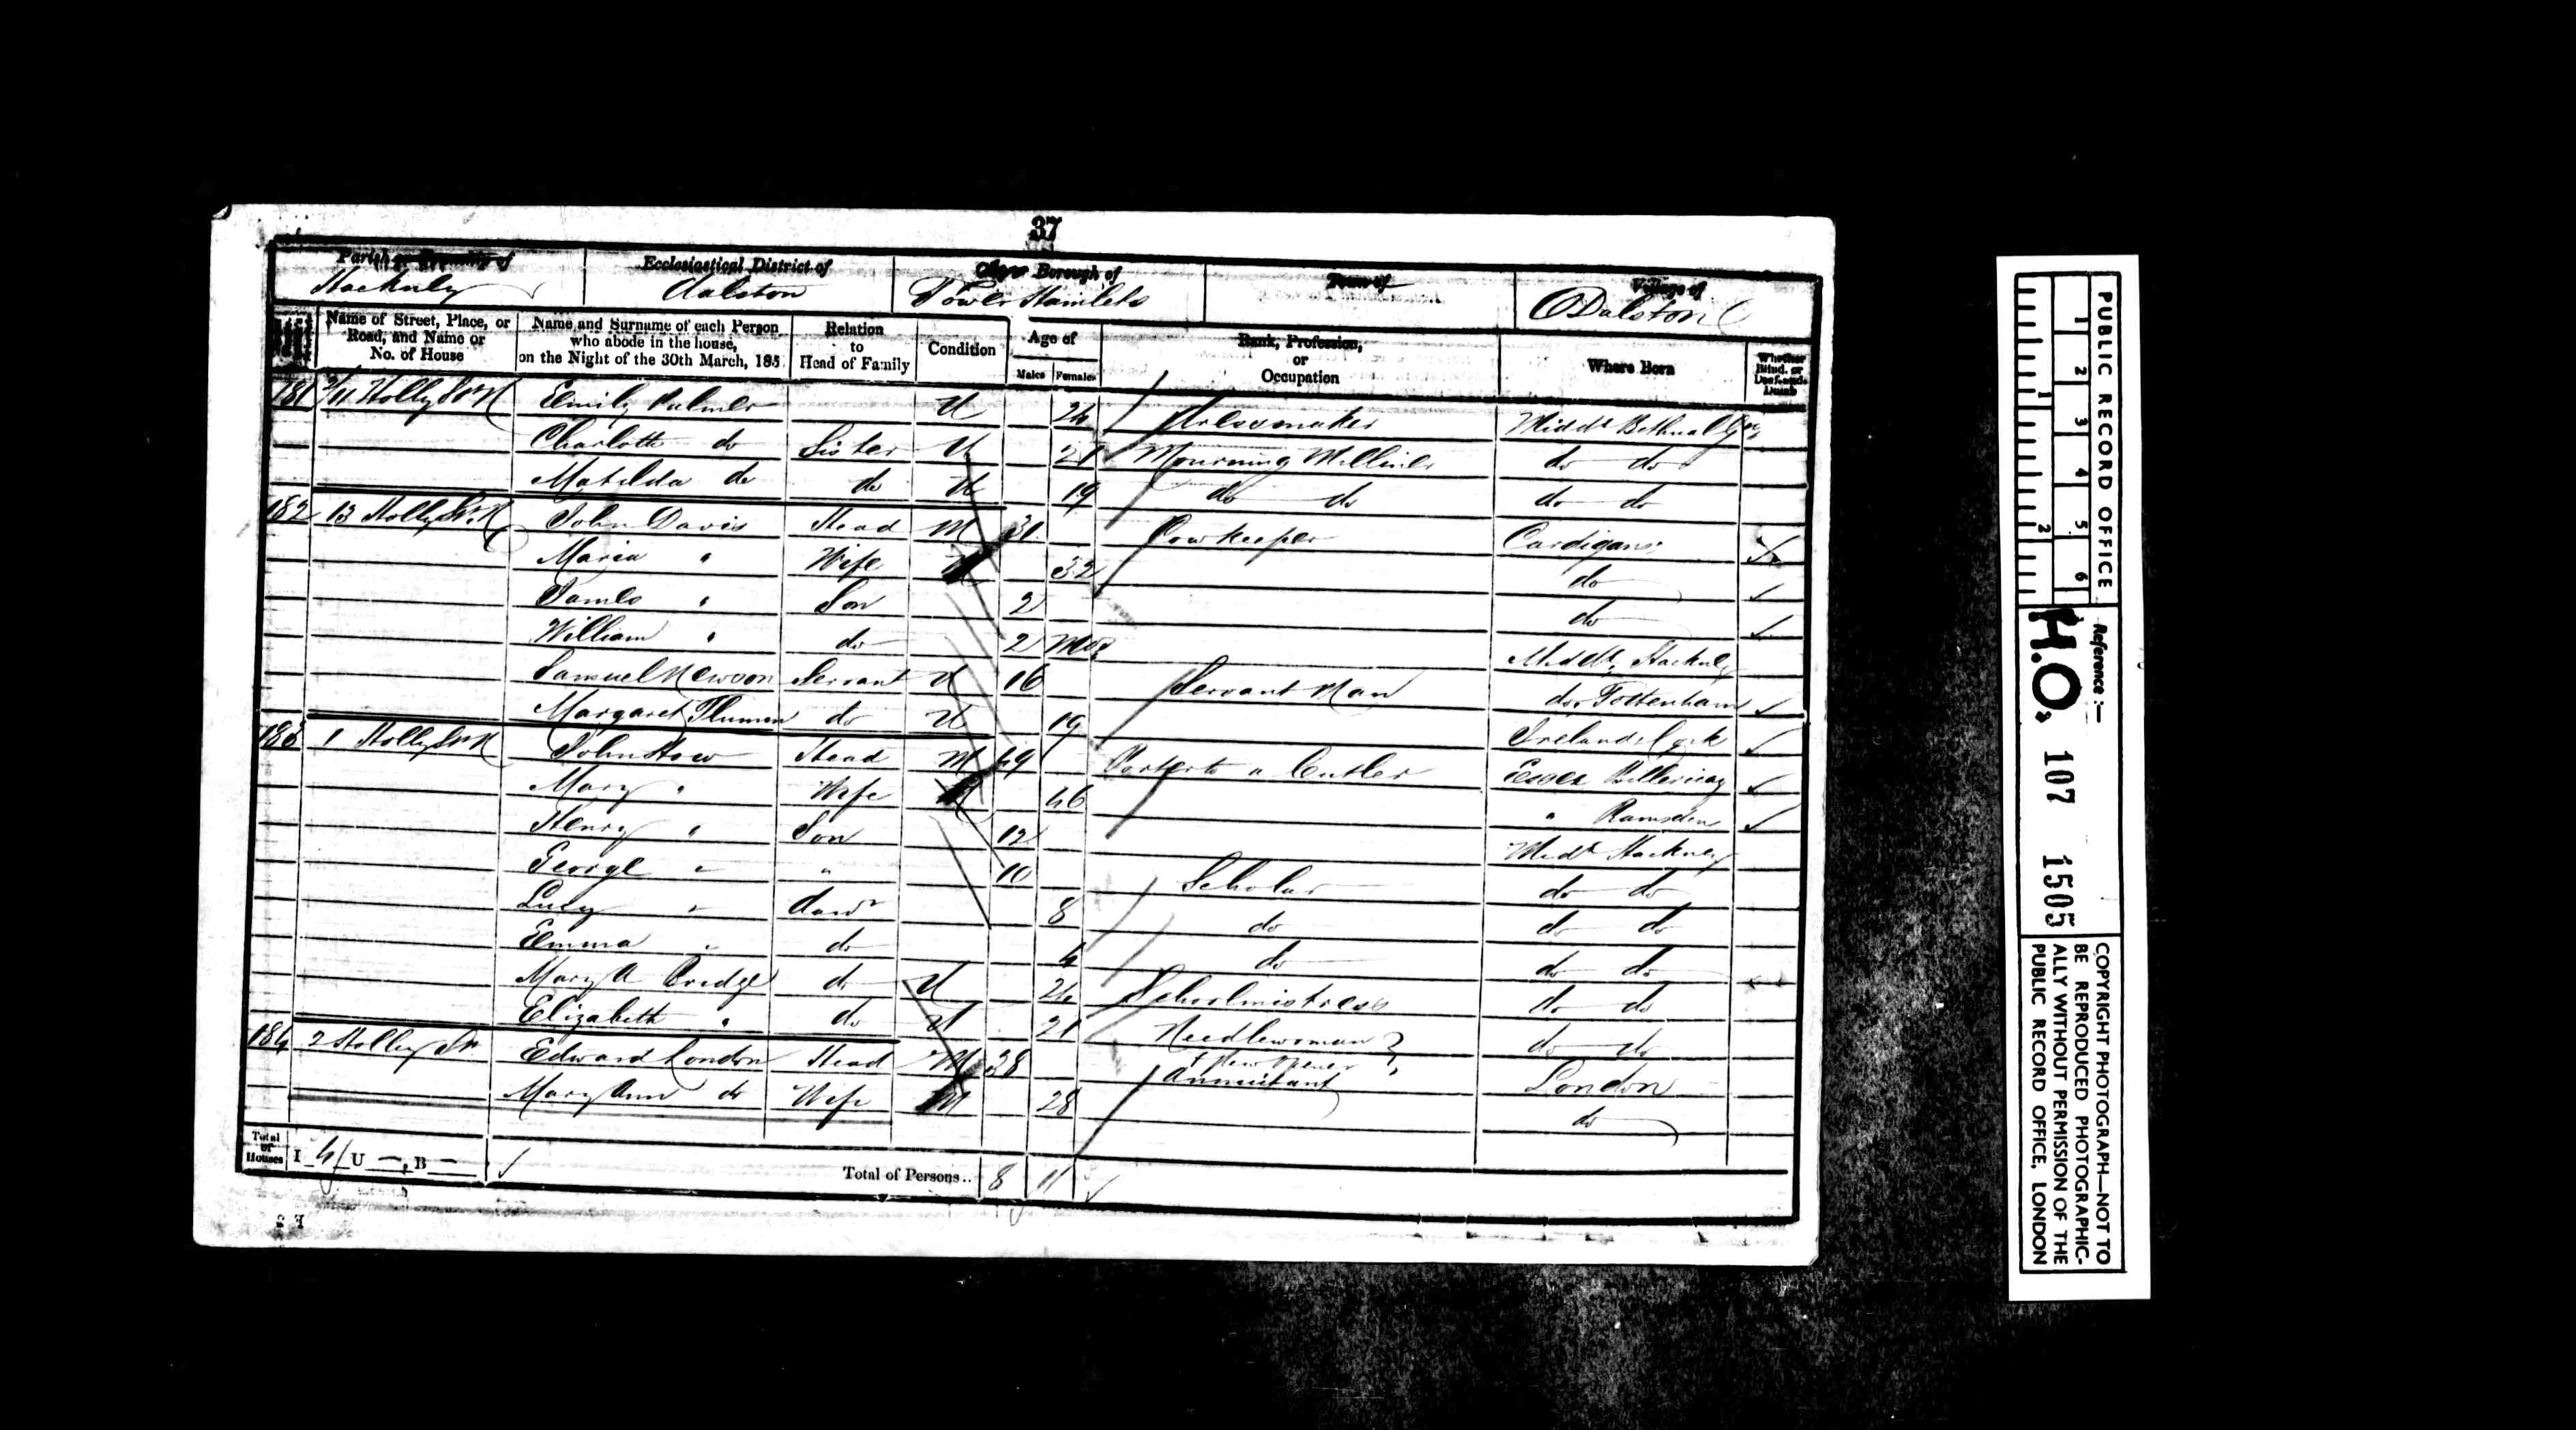 37
Parish or Township of
Ecclesiastical District of
City or Borough of
Town of
Village of
Hackney
Dalston
Tower Hamlets
Dalston
Name of Street, Place, or Road, and Name or No. of House
Name and Surname of each Person who abode in the house, on the Night of the 30th March, 185
Relation to Head of Family
Condition
Age of
Males
Females
Rank, Profession, or Occupation
Where Born
Whether Blind, or Deaf-and-Dumb
181 11 Holly St Emily Palmer U 24 Dressmaker Middx Bethnal Gn
Charlotte do Sister U 21 Mourning Milliner do do
Matilda do do U 19 do do do do
182 13 Holly St John Davis Head M 31 Cowkeeper Cardigans
Maria " Wife 32 do
James " Son 2 do
William " do 2 Mos Middx Hackney
Samuel Servant U 16 Servant Man do Tottenham
Margaret do U 19 Ireland Cork
183 1 Holly St John How Head M 49 Porter to a Cutler Essex Billericay
Mary " Wife 46 " Ramsden
Henry " Son 12 Middx Hackney
George " " 10 Scholar do do
Lucy " daur 8 do do do
Emma " do 4 do do do
Mary A do U 24 Schoolmistress do do
Elizabeth " do U 21 Needlewoman do do
+ Pew Opener
184 2 Holly St Edward London Head M 38 Annuitant London
Mary Ann do Wife M 28 do
Total of Houses I 4 U — B —
Total of Persons.. 8 11
PUBLIC RECORD OFFICE
1 2 3 4 5 6
1 2
Reference :—
H.O. 107 1505
COPYRIGHT PHOTOGRAPH—NOT TO
BE REPRODUCED PHOTOGRAPHIC-
ALLY WITHOUT PERMISSION OF THE
PUBLIC RECORD OFFICE, LONDON